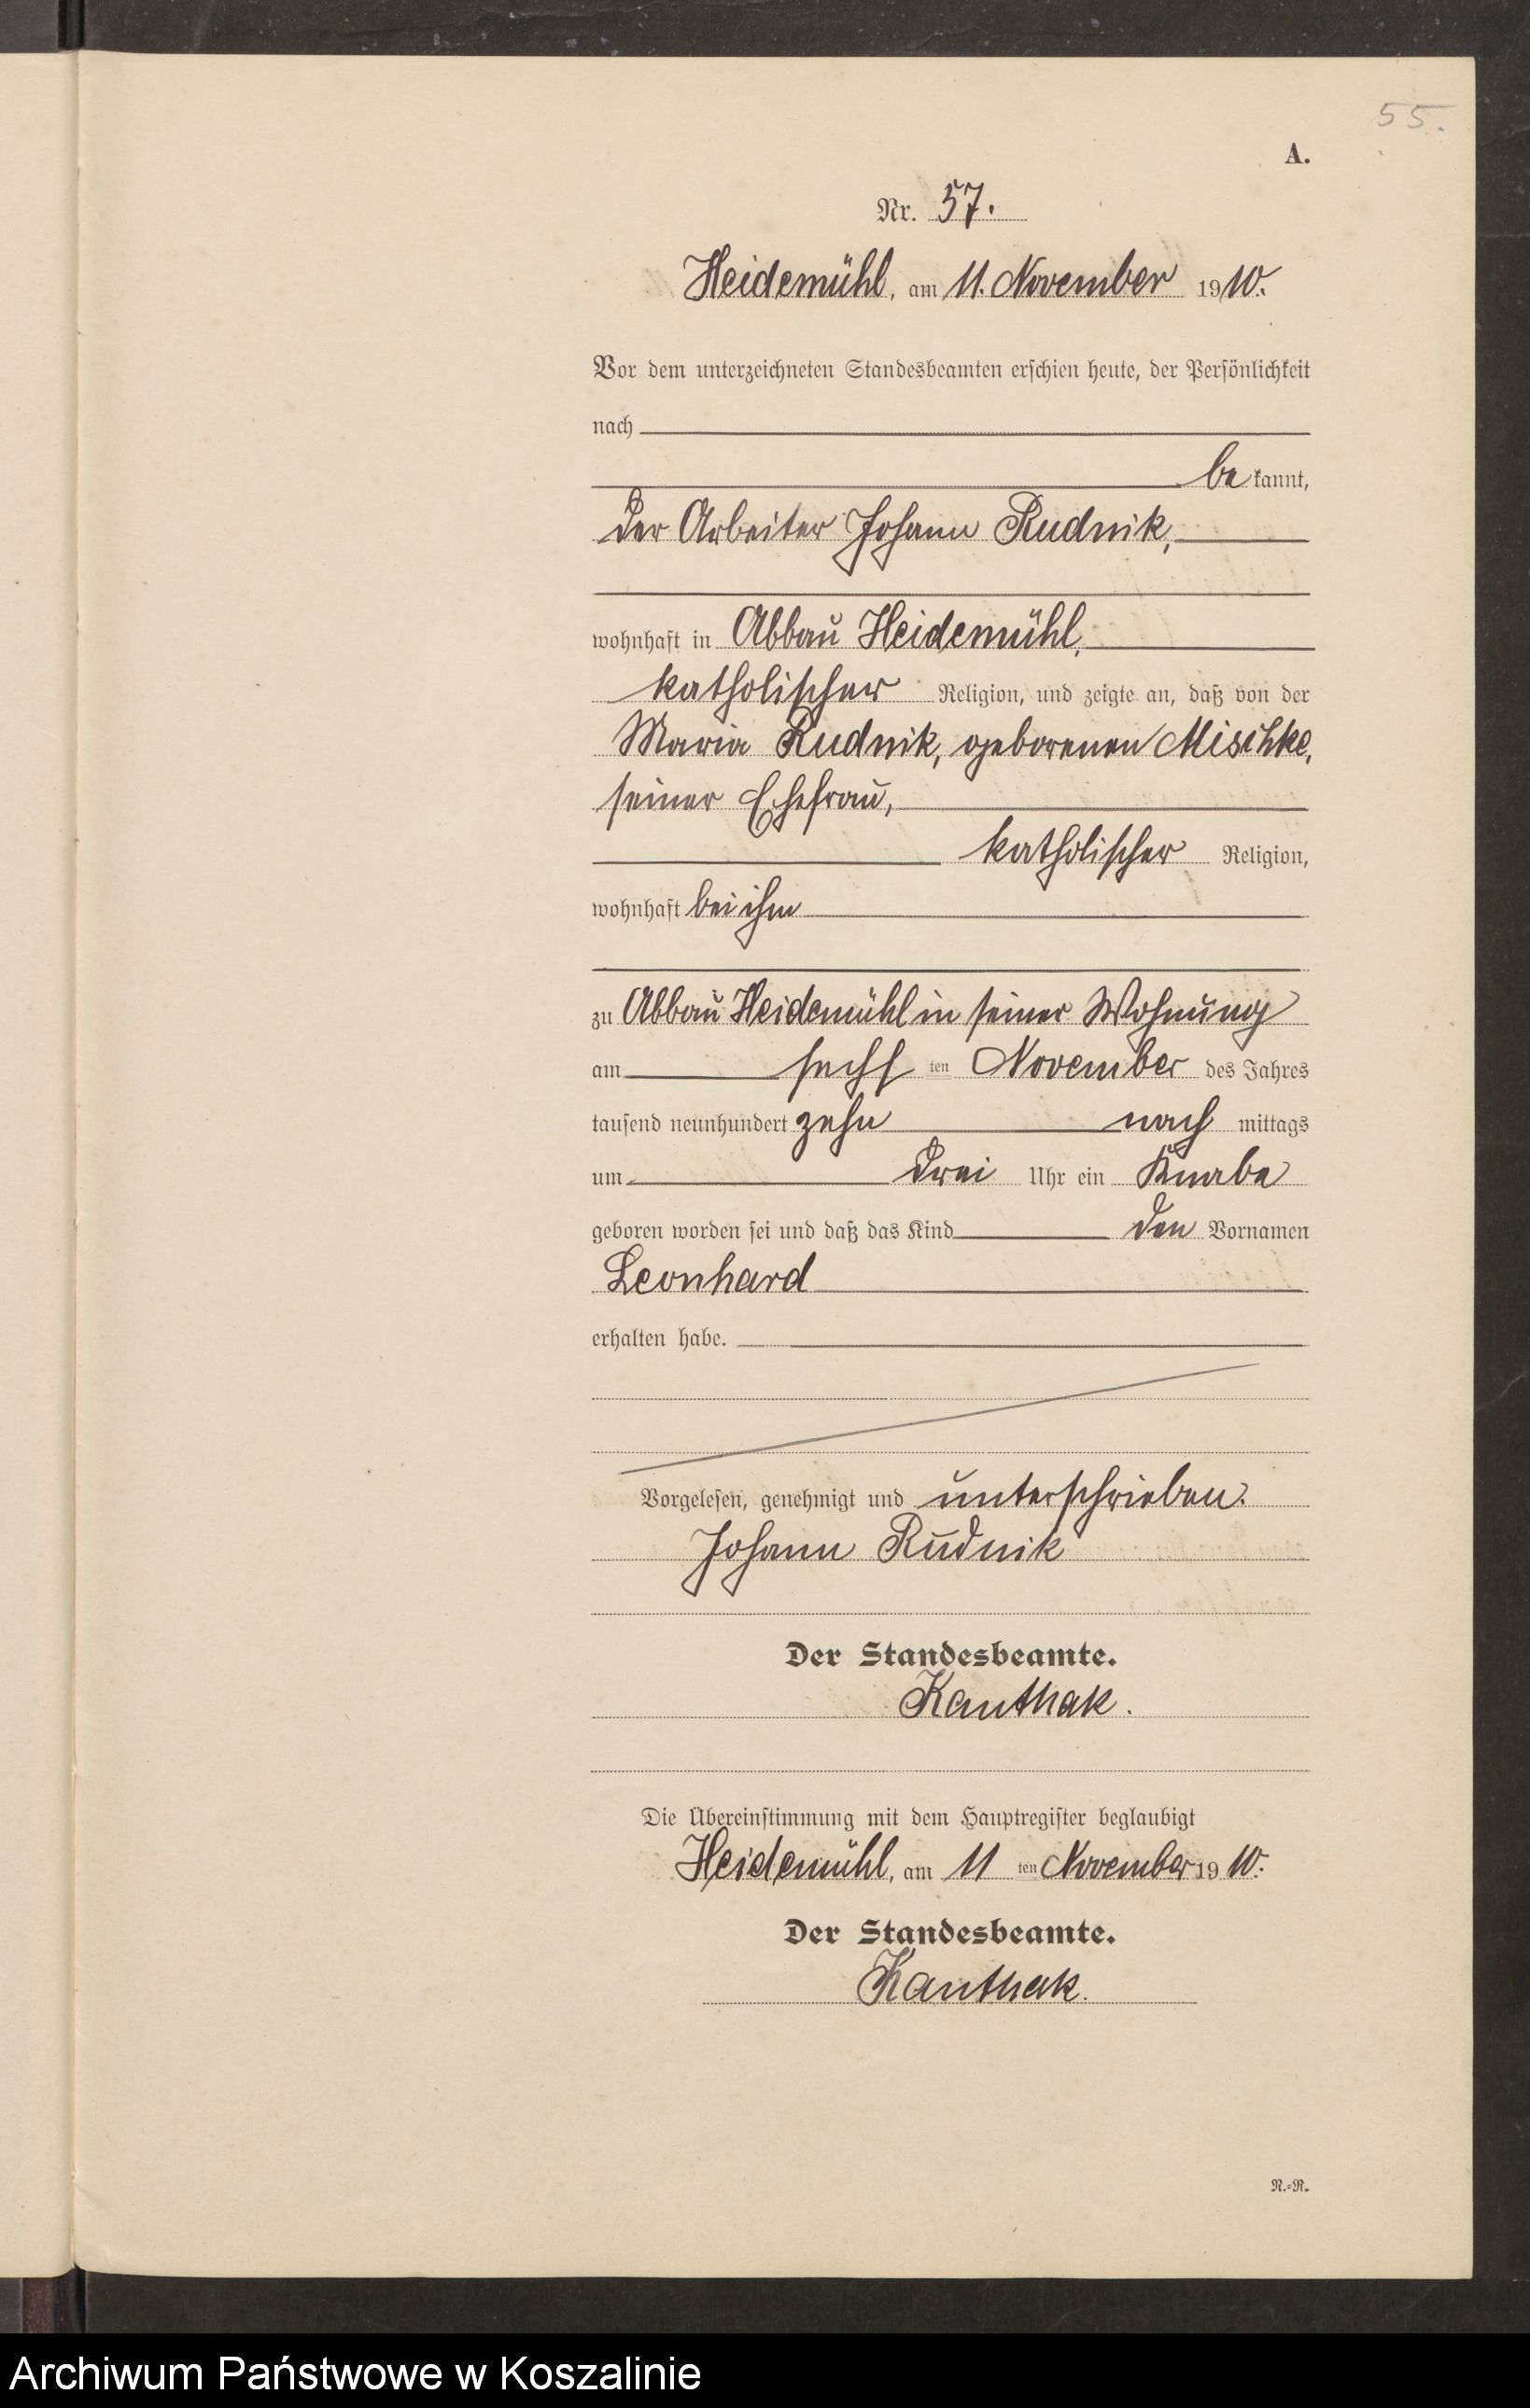 55.
A.
Nr. 57.
Heidemühl, am 11. November 1910.
Vor dem unterzeichneten Standesbeamten erschien heute, der Persönlichkeit
nach
bekannt,
der Arbeiter Johann Rudnik,
wohnhaft in Abbau Heidemühl,
katholischer Religion, und zeigte an, daß von der
Maria Rudnik, geborenen Mischke,
seiner Ehefrau,
katholischer Religion,
wohnhaft bei ihm
zu Abbau Heidemühl in seiner Wohnung
am sechsten November des Jahres
tausend neunhundert zehn nachmittags
um drei Uhr ein Knabe
geboren worden sei und daß das Kind den Vornamen
Leonhard
erhalten habe.
Vorgelesen, genehmigt und unterschrieben.
Johann Rudnik
Der Standesbeamte.
Kanthak.
Die Übereinstimmung mit dem Hauptregister beglaubigt
Heidemühl, am 11ten November 1910.
Der Standesbeamte.
Kanthak.
N.=R.
Archiwum Państwowe w Koszalinie